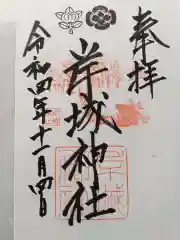 奉拝
岸城神社
令和四年十一月四日